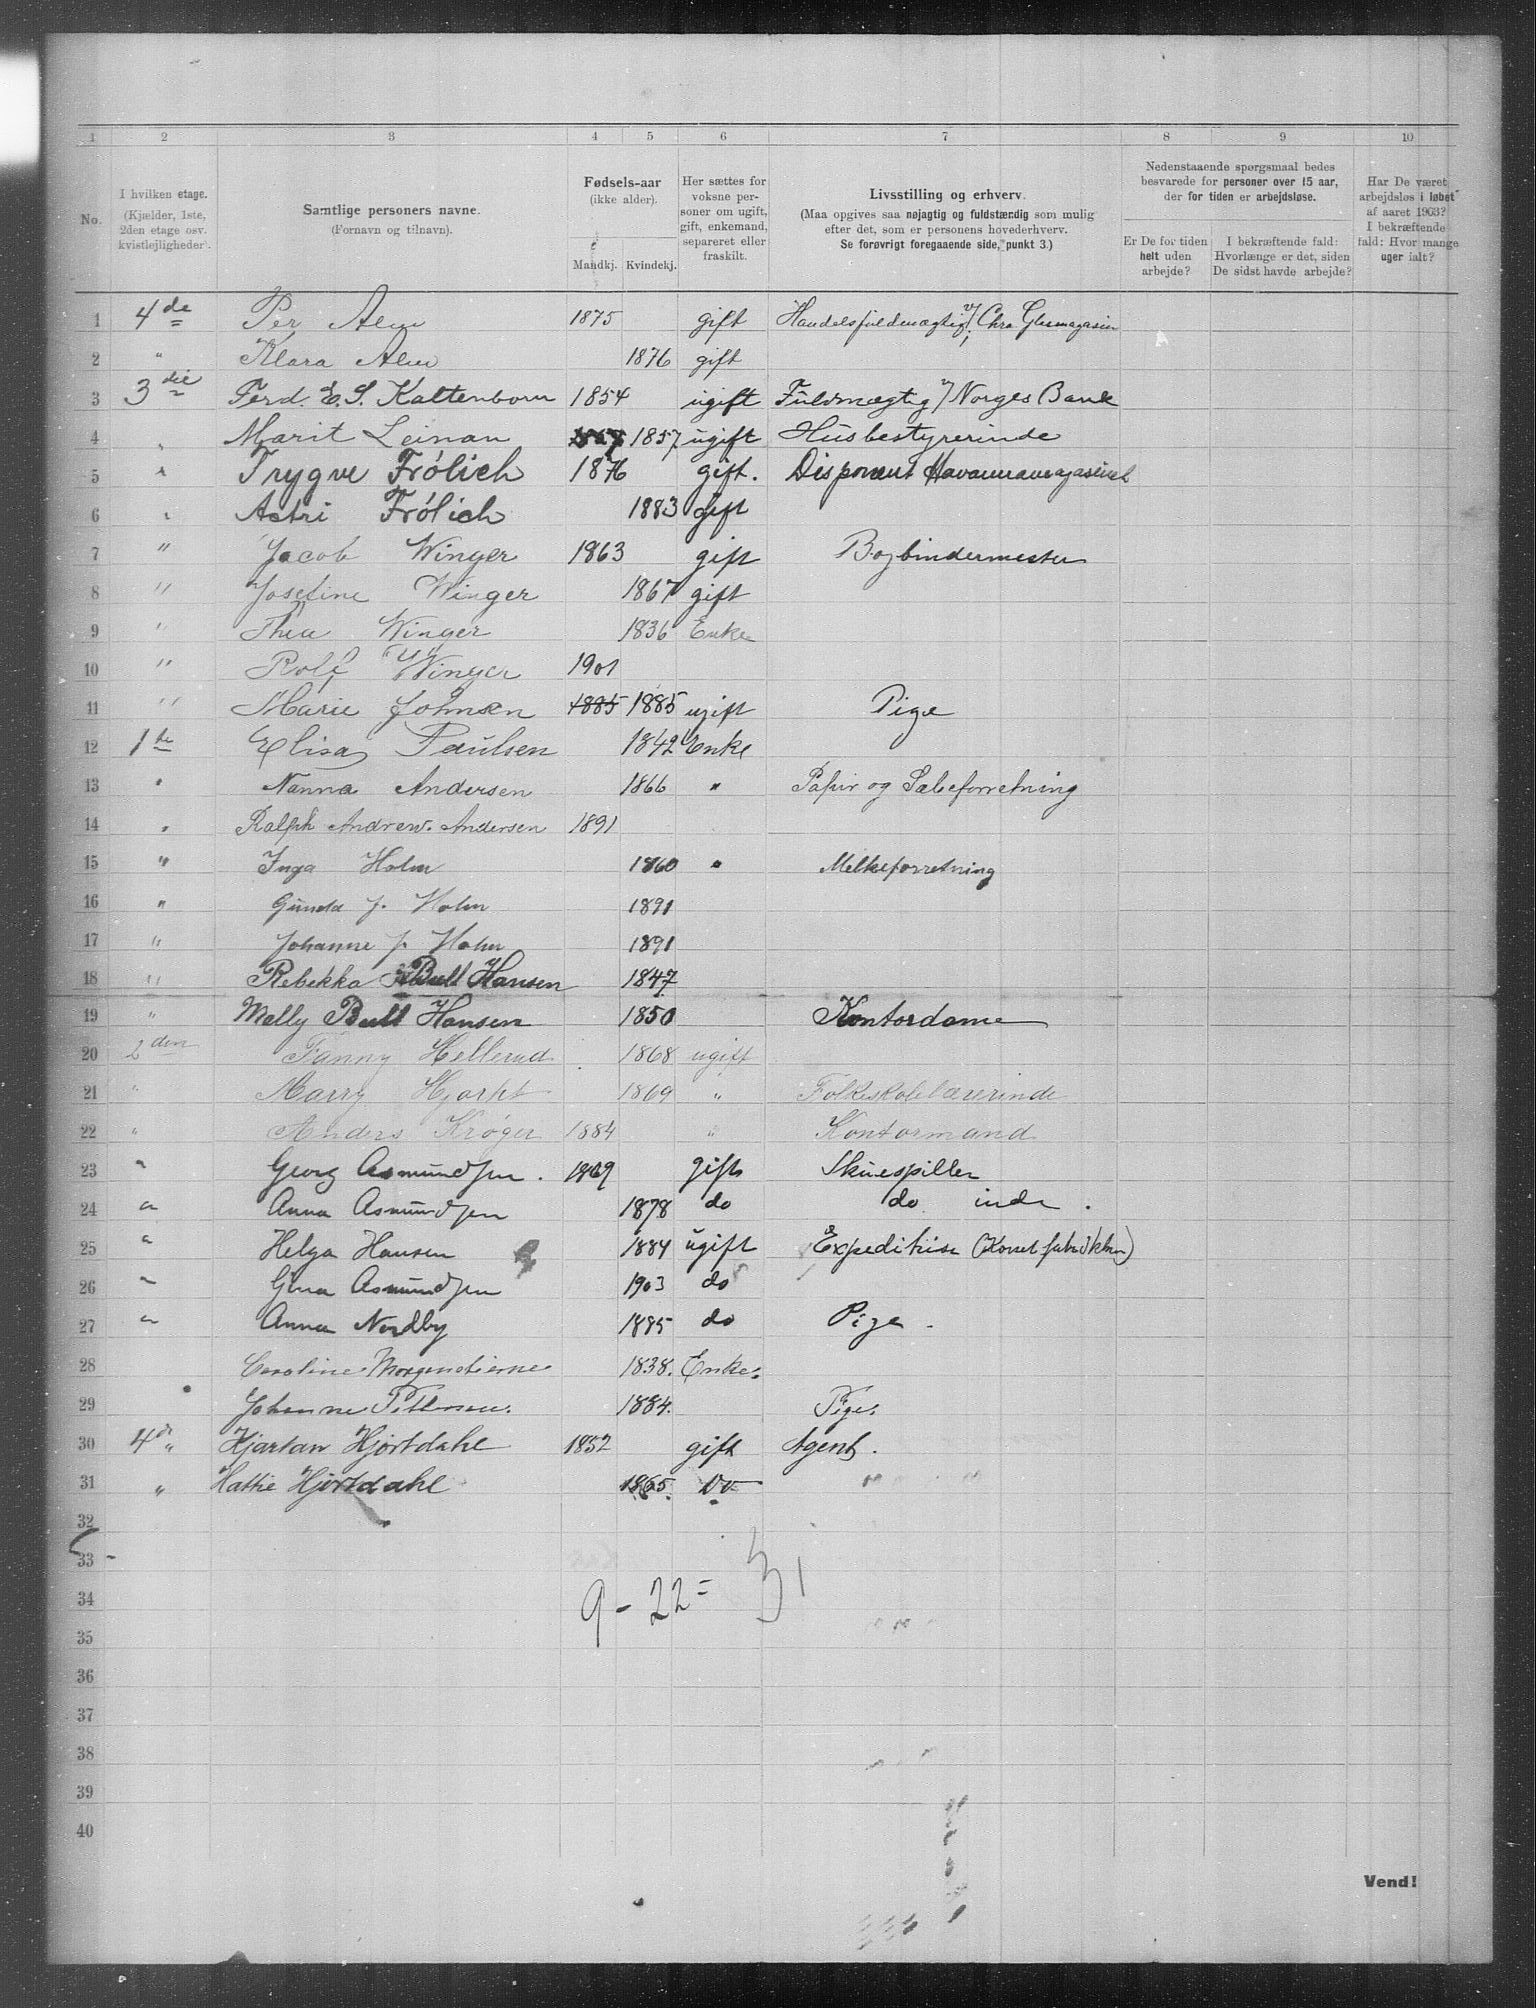 1 2 3 4 5 6 7 8 9 10
No.
I hvilken etage.
(Kjælder, 1ste, 2den etage osv. kvistlejligheder).
Samtlige personers navne.
(Fornavn og tilnavn).
Fødsels-aar
(ikke alder).
Mandkj. Kvindekj.
Her sættes for voksne personer om ugift, gift, enkemand, separeret eller fraskilt.
Livsstilling og erhverv.
(Maa opgives saa nøjagtig og fuldstændig som mulig efter det, som er personens hovederhverv.
Se forøvrigt foregaaende side, punkt 3.)
Nedenstaaende spørgsmaal bedes besvarede for personer over 15 aar, der for tiden er arbejdsløse.
Er De for tiden helt uden arbejde?
I bekræftende fald: Hvorlænge er det, siden De sidst havde arbejde?
Har De været arbejdsløs i løbet af aaret 1903? I bekræftende fald: Hvor mange uger ialt?
1 4de Per Alm 1875 gift Handelsfuldmægtig v/ Chra Glasmagasin
2 " Klara Alm 1876 gift
3 3die Ferd. E. S. Kaltenborn 1854 ugift Fuldmægtig v/ Norges Bank
4 " Marit Leinan 1857 ugift Husbestyrerinde
5 " Trygve Frölich 1876 gift. Disponent Havannamagasinet
6 " Astri Frölich 1883 gift
7 " Jacob Winger 1863 gift Bogbindermester
8 " Josefine Winger 1867 gift
9 " Thea Winger 1836 Enke
10 " Rolf Winger 1901
11 " Marie Johnsen 1885 1885 ugift Pige
12 1ste Elisa Paulsen 1842 Enke
13 " Nanna Andersen 1866 " Papir og Sæbeforretning
14 " Ralph Andrew. Andersen 1891
15 " Inga Holm 1860 " Melkeforretning
16 " Gunda J. Holm 1891
17 " Johanne J. Holm 1891
18 " Rebekka Bull Hansen 1847
19 " Melly Bull Hansen 1850 Kontordame
20 2den Fanny Hellerud 1868 ugift
21 " Marry Hjorht 1869 " Folkeskolelærerinde
22 " Anders Krøger 1884 " Kontormand
23 " Georg Asmundsen. 1869 gift Skuespiller
24 " Anna Asmundsen 1878 do do inde.
25 " Helga Hansen 1884 ugift Expeditrise (Korsetfabrikken)
26 " Gina Asmundsen 1903 do
27 " Anna Nordby 1885 do Pige.
28 Caroline Morgenstierne 1838. Enke.
29 Johanne Pettersen. 1884. Pige.
30 4de " Hjartan Hjortdahl 1852 gift Agent.
31 " Hattie Hjortdahl 1865. Do
32
33
34
35
36
37
38
39
40
9 - 22 = 31
Vend!